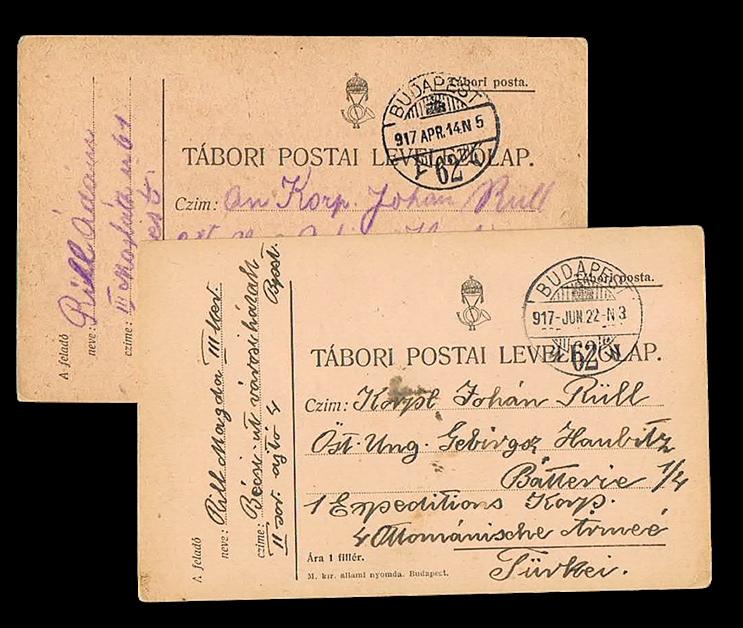 Tábori posta.
BUDAPEST
917 APR.14.N 5
62
TÁBORI POSTAI LEVELEZŐLAP.
Czim: An Korp. Johan Rüll
A feladó
neve: Rüll Ádám
czime: III
Tábori posta.
BUDAPEST
917-JUN.22-N 3
62
TÁBORI POSTAI LEVELEZŐLAP.
Czim: Korpl Johán Rüll
Öst-Ung. Gebirgsz Haubitz
Batterie 1/4
1 Expeditions Korp.
4 Ottomanische Armeé
Türkei.
Ára 1 fillér.
M. kir. állami nyomda. Budapest.
A feladó
neve: Rüll Magda III ker.
czime: Bécsi út városi házak
II sor. ajtó 4
Bpest.